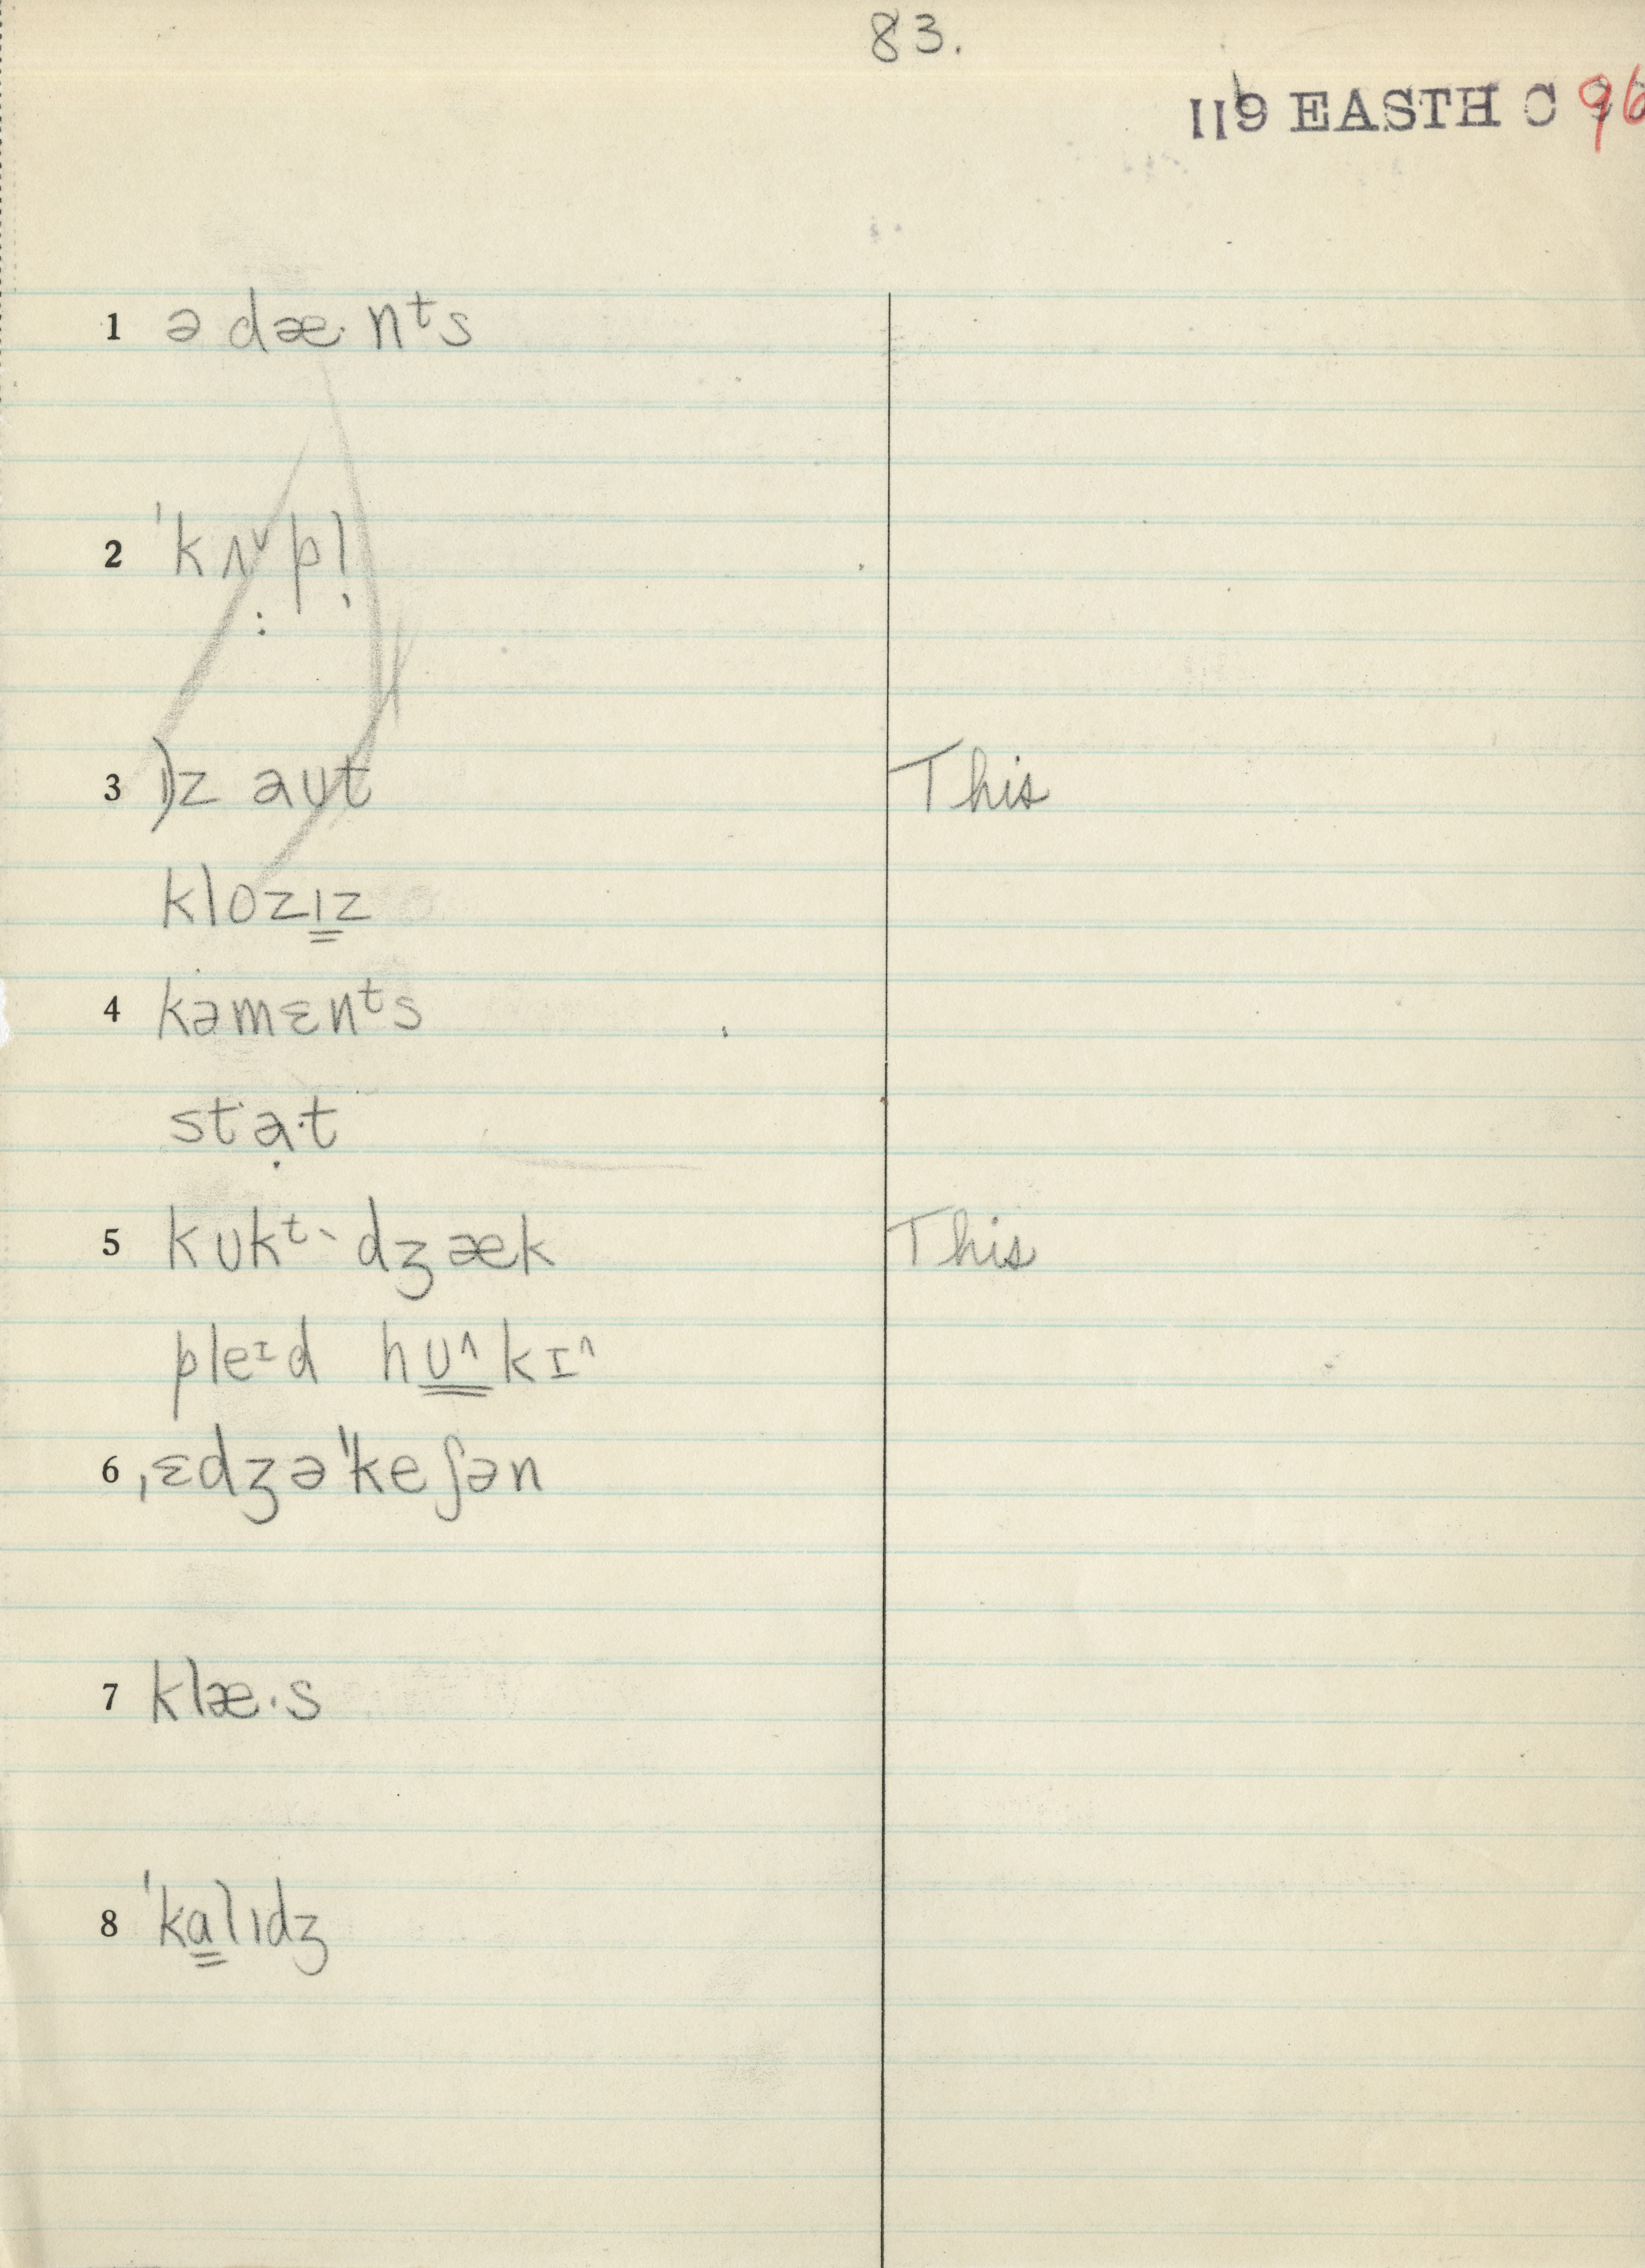 83.
119 EASTH C 96
1 ə dæ· nᵗs
2 ˈkʌ˅pl̩
3 )ɪz aut This
klozɪz
4 kəmɛnᵗs
stạ·t
5 kʊkᵗ` dʒæk This
pleɪd hʊ^kɪ^
6 ˌɛdʒəˈkeʃən
7 klæ·s
8 ˈkalɪdʒ